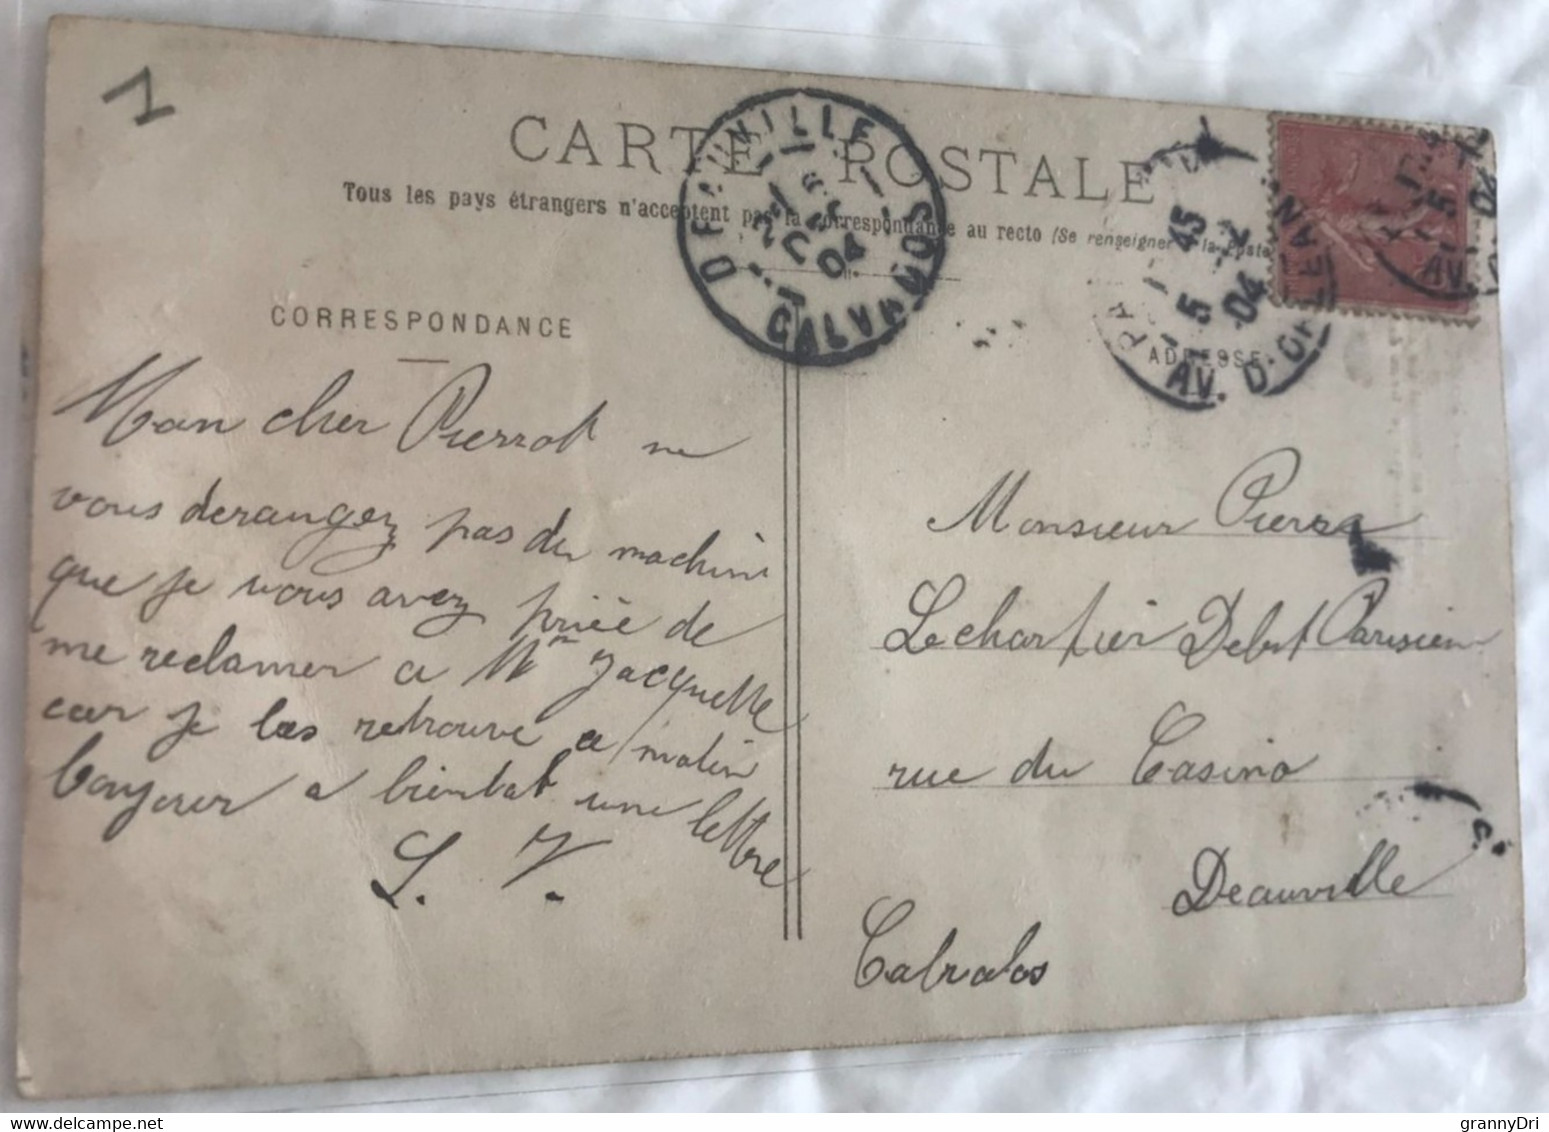 1
CARTE POSTALE
Tous les pays étrangers n'acceptent pas la correspondance au recto (Se renseigner à la Poste
DEAUVILLE
6
DEC
04
CALVADOS
45
5-12
04
PA
AV. D'ORLEAN
CORRESPONDANCE
Mon cher Pierrot ne
vous derangez pas du machini
que je vous avez priée de
me reclamer a Mme Jacquette
car je las retrouve a matin
bonjour a bientot une lettre
L. V.
ADRESSE
Monsieur Pierre
Lechartier Debit Parisien
rue du Casino
Deauville
Calvados
grannyDri